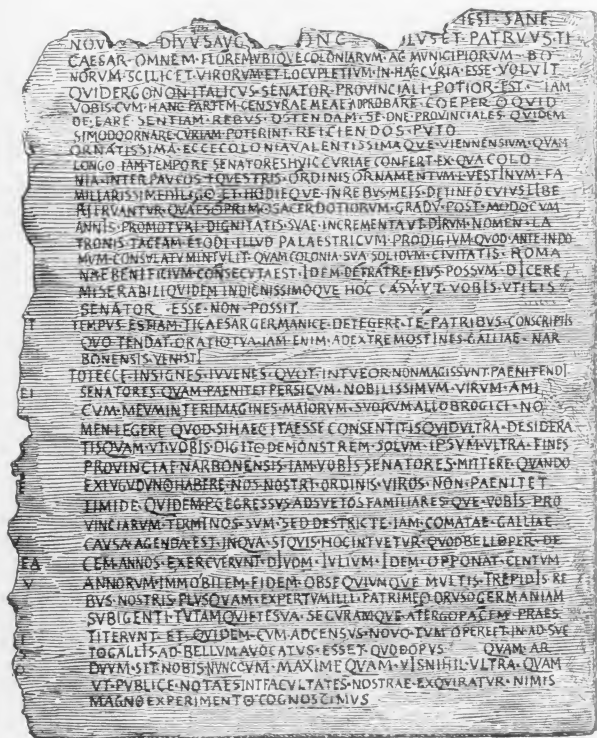 IESI·SANE
NOVO DIVVS AVG ONC LVS ET PATRVVS TI
CAESAR·OMNEM·FLOREM VBIQVE COLONIARVM·AC MVNICIPIORVM·BO
NORVM·SCILICET VIRORVM·ET LOCVPLETIVM·IN HAC CVRIA·ESSE·VOLVIT
QVID ERGO NON ITALICVS SENATOR·PROVINCIALI·POTIOR EST·IAM
VOBIS CVM·HANC PARTEM CENSVRAE MEAE ADPROBARE·COEPERO QVID
DE EA RE·SENTIAM·REBVS·OSTENDAM·SED NE·PROVINCIALES·QVIDEM
SI MODO ORNARE·CVRIAM POTERINT·REICIENDOS·PVTO
ORNATISSIMA·ECCE COLONIA VALENTISSIMAQVE VIENNENSIVM·QVAM
LONGO IAM·TEMPORE SENATORES HVIC CVRIAE CONFERT·EX QVA COLO
NIA·INTER PAVCOS·EQVESTRIS·ORDINIS ORNAMENTVM·L VESTINVM·FA
MILIARISSIME DILIGO·ET·HODIEQVE·IN REBVS MEIS·DETINEO CVIVS LIBE
RI FRVANTVR·QVAESO PRIMO SACERDOTIORVM·GRADV·POST·MODO CVM
ANNIS·PROMOTVRI·DIGNITATIS SVAE·INCREMENTA VT DIRVM NOMEN·LA
TRONIS·TACEAM·ET ODI·ILLVD PALAESTRICVM·PRODIGIVM QVOD·ANTE IN DO
MVM·CONSVLATVM INTVLIT·QVAM COLONIA·SVA SOLIDVM·CIVITATIS·ROMA
NAE BENIFICIVM CONSECVTA EST·IDEM·DE FRATRE·EIVS POSSVM·DICERE
MISERABILI QVIDEM INDIGNISSIMOQVE·HOC CASV·VT VOBIS·VTILIS
SENATOR·ESSE·NON·POSSIT
T TEMPVS EST IAM·TI CAESAR GERMANICE·DETEGERE·TE·PATRIBVS·CONSCRIPTIS
QVO TENDAT·ORATIO TVA·IAM ENIM·AD EXTREMOS FINES GALLIAE·NAR
BONENSIS·VENISTI
TOT ECCE·INSIGNES·IVVENES·QVOT·INTVEOR·NON MAGIS SVNT·PAENITENDI
EI SENATORES·QVAM·PAENITET PERSICVM·NOBILISSIMVM·VIRVM·AMI
CVM·MEVM·INTER IMAGINES·MAIORVM·SVORVM·ALLOBROGICI·NO
MEN·LEGERE·QVOD·SI HAEC ITA ESSE·CONSENTITIS QVID VLTRA·DESIDERA
TIS QVAM·VT·VOBIS·DIGITO DEMONSTREM·SOLVM·IPSVM·VLTRA·FINES
PROVINCIAE NARBONENSIS·IAM·VOBIS SENATORES·MITTERE·QVANDO
EX LVGVDVNO HABERE·NOS·NOSTRI·ORDINIS VIROS·NON·PAENITET
TIMIDE·QVIDEM·P C EGRESSVS ADSVETOS FAMILIARESQVE·VOBIS PRO
VINCIARVM·TERMINOS·SVM·SED DESTRICTE·IAM·COMATAE·GALLIAE
V CAVSA·AGENDA·EST·IN QVA·SI QVIS·HOC INTVETVR·QVOD BELLO PER·DE
EA CEM ANNOS·EXERCVERVNT·DIVOM·IVLIVM·IDEM·OPPONAT·CENTVM
V ANNORVM·IMMOBILEM·FIDEM·OBSEQVIVMQVE MVLTIS·TREPIDIS·RE
BVS·NOSTRIS·PLVS QVAM·EXPERTVM ILLI·PATRI MEO DRVSO GERMANIAM
SVBIGENTI·TVTAM QVIETE SVA·SECVRAMQVE·A TERGO PACEM·PRAES
TITERVNT·ET·QVIDEM·CVM·AD CENSVS·NOVO·TVM OPERE ET IN AD SVE
TO GALLIS·AD·BELLVM AVOCATVS·ESSET·QVOD OPVS QVAM·AR
DVVM·SIT·NOBIS NVNC CVM·MAXIME QVAM·VIS NIHIL·VLTRA·QVAM
VT·PVBLICE·NOTAE SINT FACVLTATES·NOSTRAE·EXQVIRATVR·NIMIS
MAGNO EXPERIMENTO COGNOSCIMVS